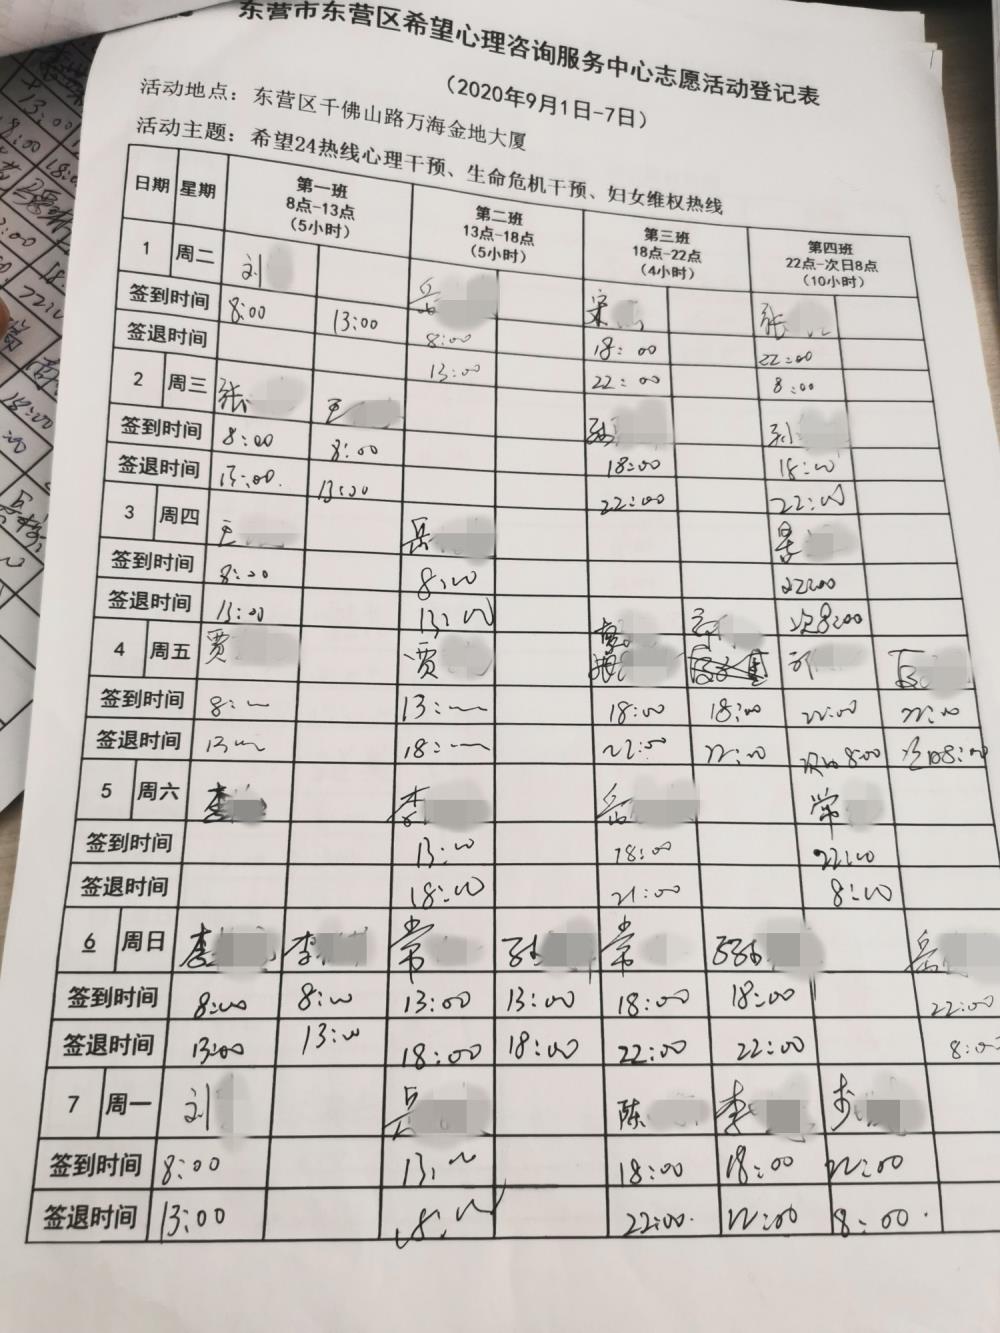 东营市东营区希望心理咨询服务中心志愿活动登记表
（2020年9月1日-7日）
活动地点：东营区千佛山路万海金地大厦
活动主题：希望24热线心理干预、生命危机干预、妇女维权热线
日期 星期 第一班 8点-13点 （5小时） 第二班 13点-18点 （5小时） 第三班 18点-22点 （4小时） 第四班 22点-次日8点 （10小时）
1 周二 刘 岳 宋 张
签到时间 8:00 13:00 8:00 18:00 22:00
签退时间 13:00 22:00 8:00
2 周三 张 王 孙
签到时间 8:00 8:00 18:00 18:00
签退时间 13:00 13:00 22:00 22:00
3 周四 王 岳
签到时间 8:00 8:00 22:00
签退时间 13:00 13:00 次8:00
4 周五 贾 贾
签到时间 8: 13: 18:00 18:00 22:00 22:00
签退时间 13: 18: 22:00 22:00 次日8:00 次日8:00
5 周六 李 李 岳 常
签到时间 13:00 18:00 22:00
签退时间 18:00 21:00 8:00
6 周日 李 李 常 孙 常 孙 岳
签到时间 8:00 8:00 13:00 13:00 18:00 18:00 22:00
签退时间 13:00 13:00 18:00 18:00 22:00 22:00 8:00
7 周一 刘 岳 陈 李 步
签到时间 8:00 13:00 18:00 18:00 22:00
签退时间 13:00 18:00 22:00 22:00 8:00